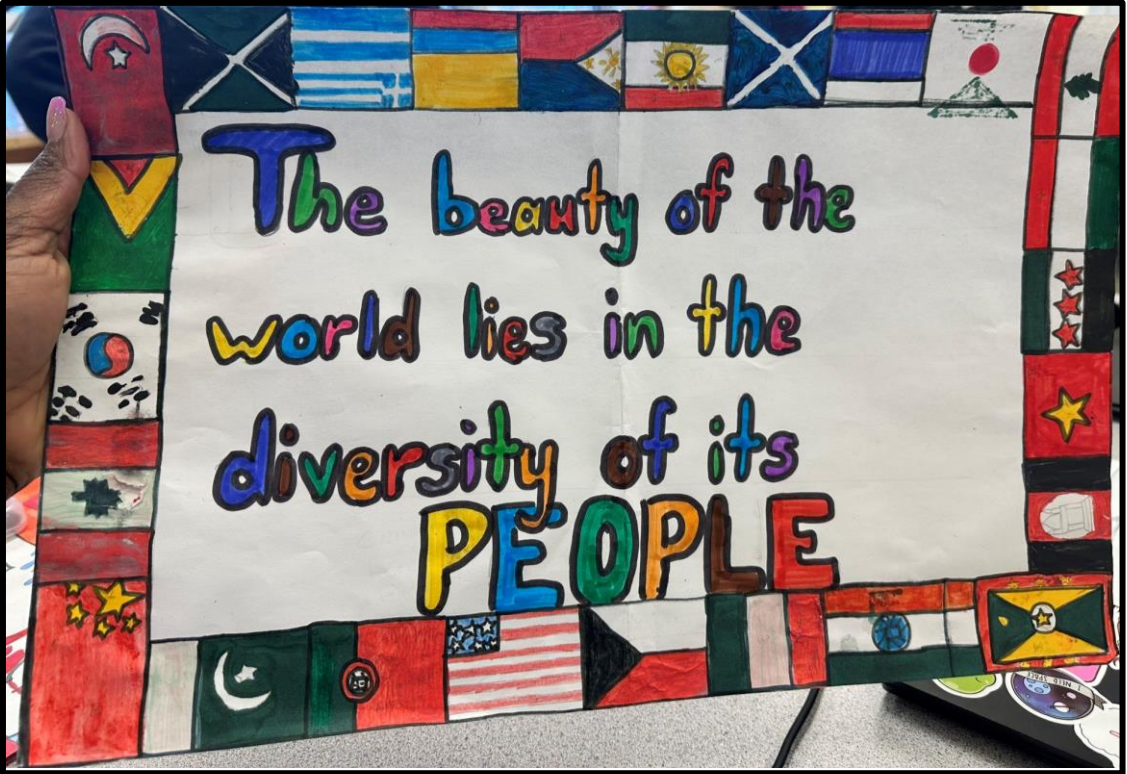 The beauty of the
world lies in the
diversity of its
PEOPLE
I NEED SPACE